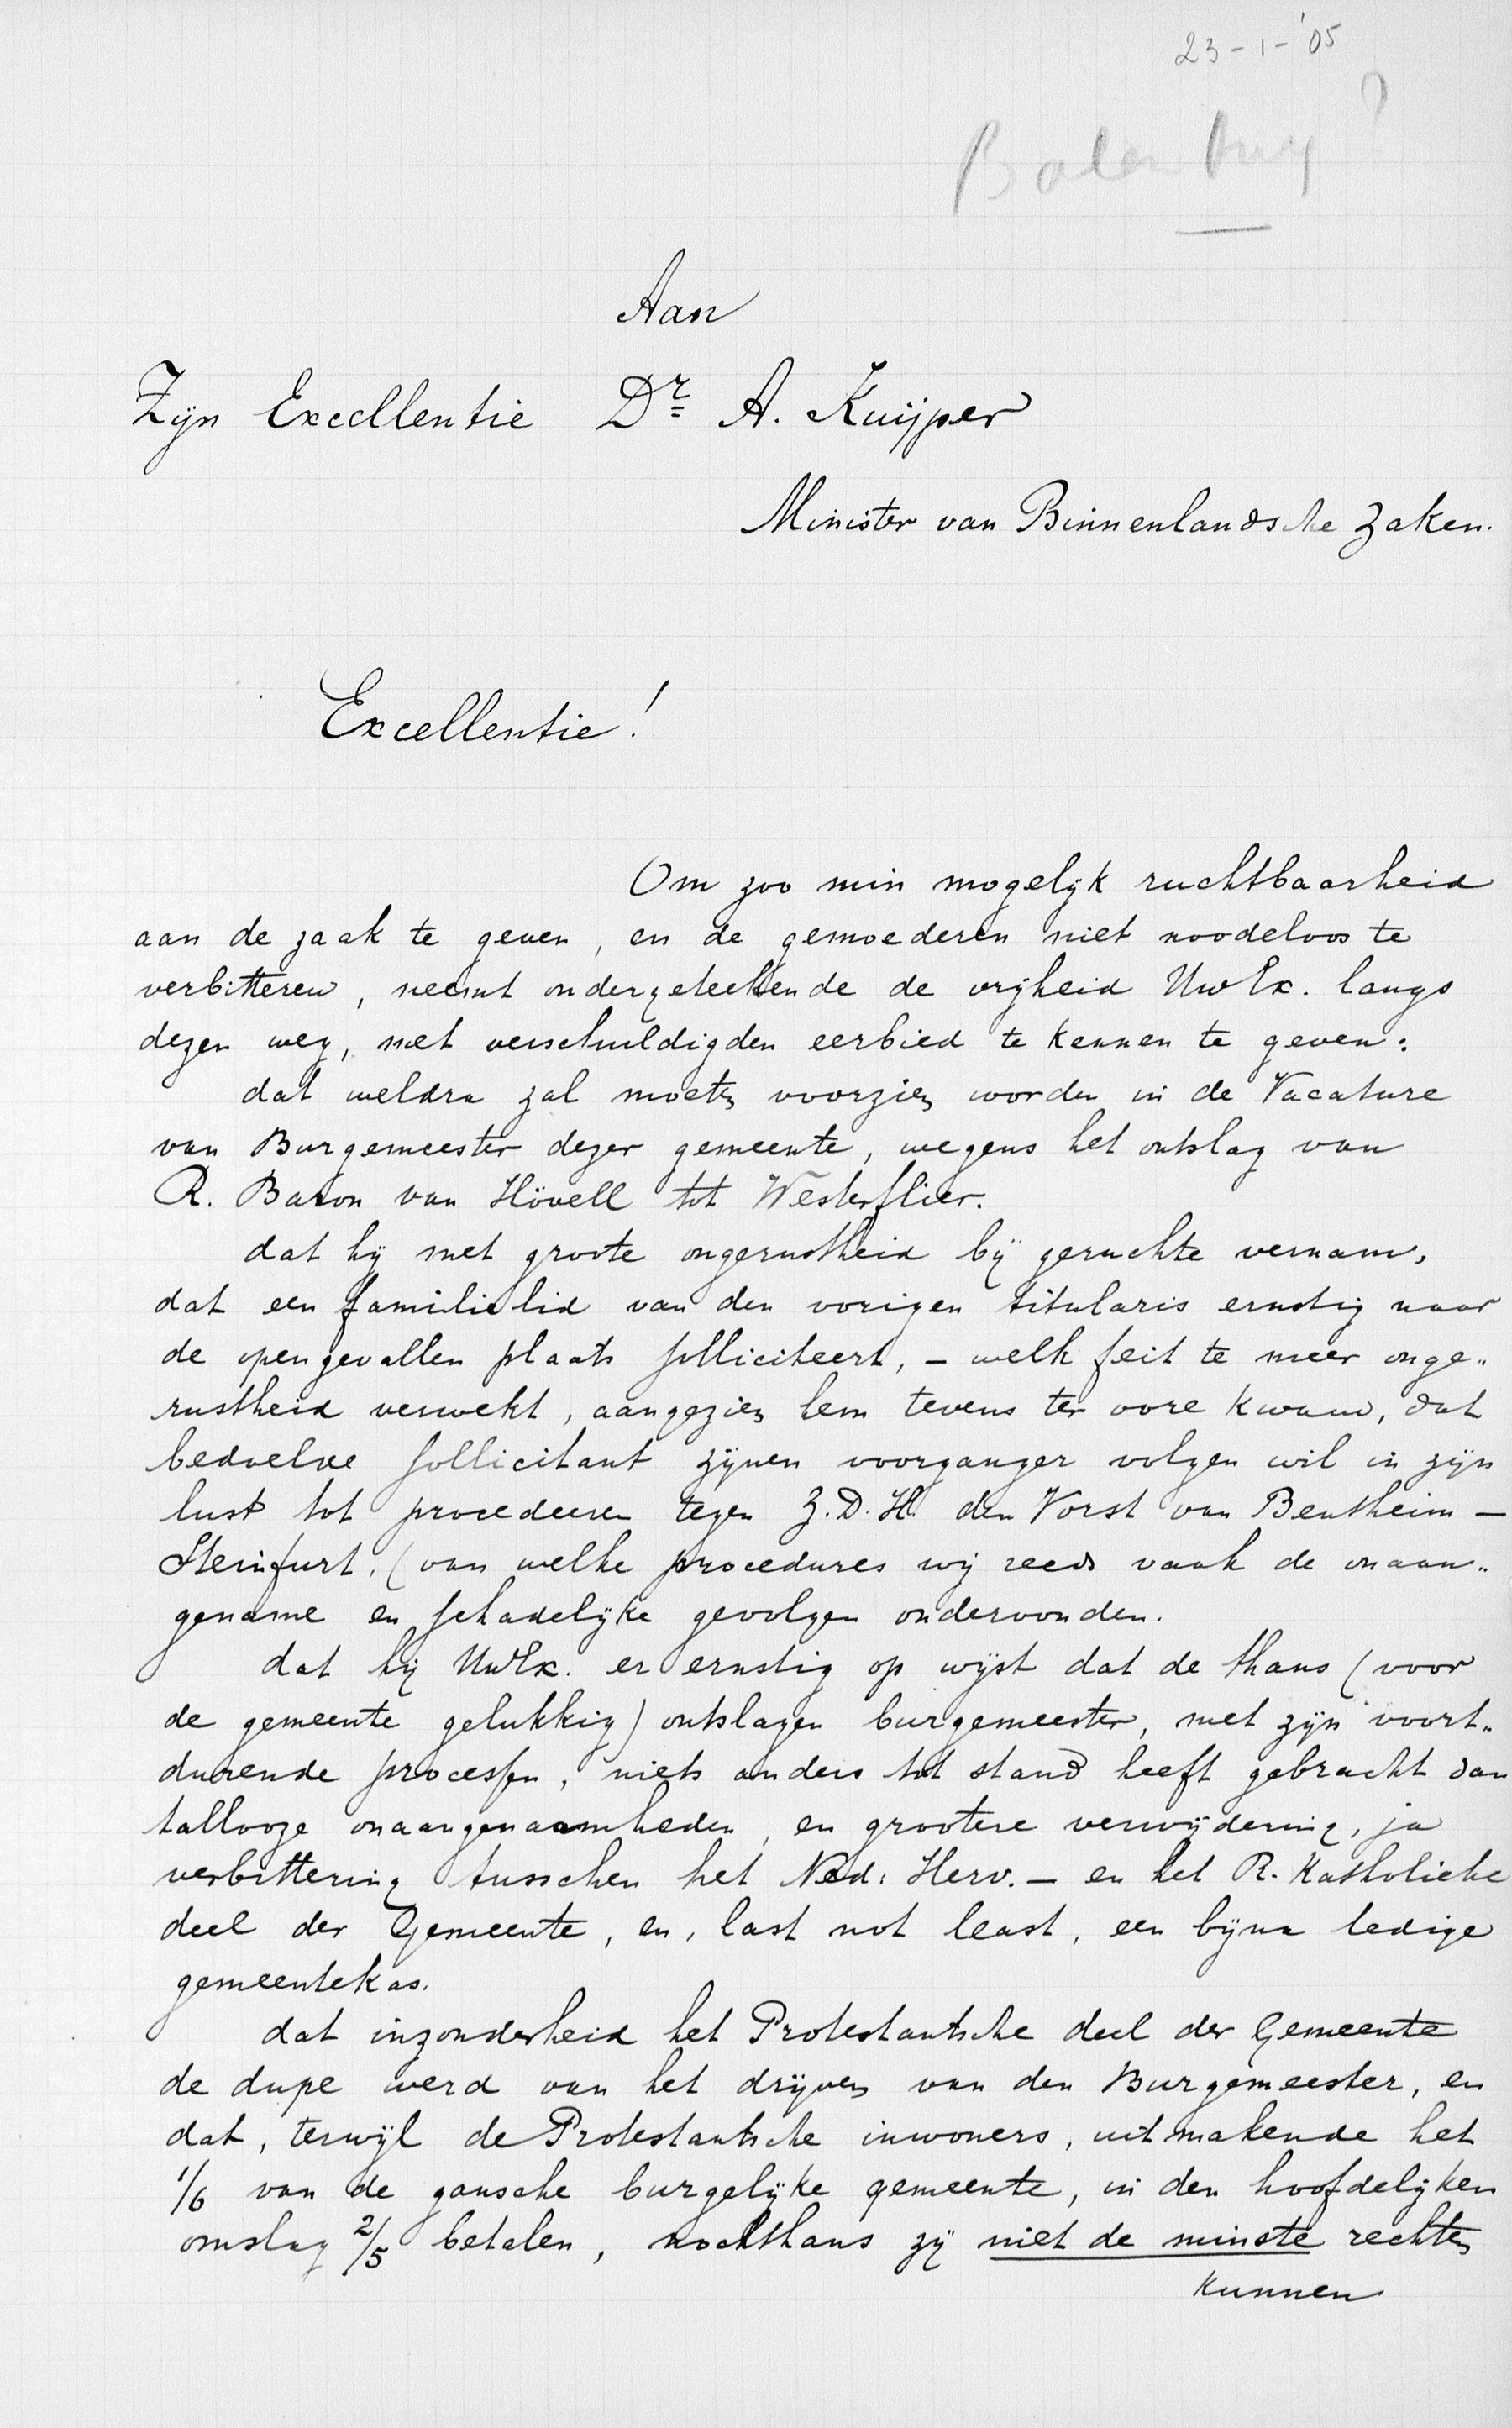 23-1-'05
Aan
Zijn Excellentie Dr A. Kuijper
Minister van Binnenlandsche Zaken.
Excellentie!
Om zoo min mogelijk ruchtbaarheid
aan de zaak te geven, en de gemoederen niet noodeloos te
verbitteren, neemt ondergeteekende de vrijheid UwEx. langs
dezen weg, met verschuldigden eerbied te kennen te geven:
dat weldra zal moeten voorzien worden in de Vacature
van Burgemeester dezer gemeente, wegens het ontslag van
R. Baron van Hövell tot Westerflier.
dat hij met groote ongerustheid bij geruchte vernam,
dat een familielid van den vorigen titularis ernstig naar
de opengevallen plaats solliciteert, - welk feit te meer onge„
rustheid verwekt, aangezien hem tevens ter oore kwam, dat
bedoelde sollicitant zijnen voorganger volgen wil in zijn
lust tot procedeeren tegen Z.D.H. den Vorst van Bentheim -
Steinfurt, (van welke procedures wij reeds vaak de onaan„
gename en schadelijke gevolgen ondervonden.
dat hij UwEx. er ernstig op wijst dat de thans (voor
de gemeente gelukkig) ontslagen burgemeester, met zijn voort„
durende processen, niets anders tot stand heeft gebracht dan
tallooze onaangenaamheden, en grootere verwijdering, ja
verbittering tusschen het Ned. Herv. - en het R. Katholieke
deel der Gemeente, en, last not least, een bijna ledige
gemeentekas.
dat inzonderheid het Protestantsche deel der Gemeente
de dupe werd van het drijven van den Burgemeester, en
dat, terwijl de Protestantsche inwoners, uitmakende het
1/6 van de gansche burgelijke gemeente, in den hoofdelijken
omslag 2/5 betalen, nochthans zij niet de minste rechten
kunnen